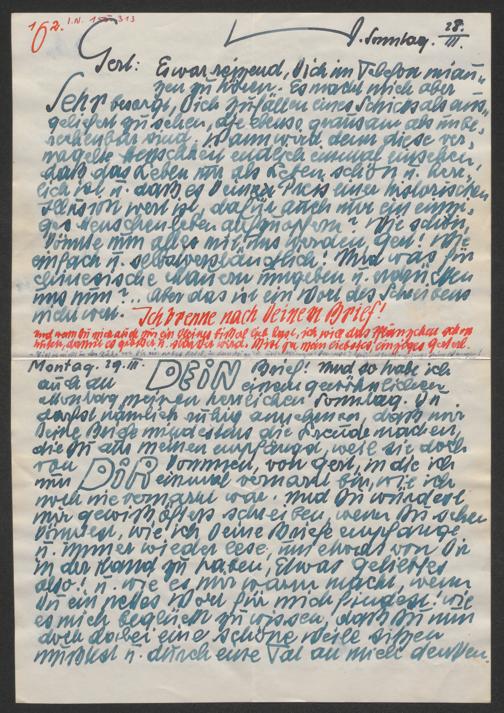 162. I.N. 1 313
Sonntag. 28.
III.
Gerl: Es war reizend, Dich im Telefon miau-
zen zu hören. Es macht mich aber
Sehr besorgt, Dich Zufällen eines Schicksals aus-
geliefert zu sehen, die ebenso grausam als unbe-
rechenbar sind. Wann wird denn diese ver-
Menschheit endlich einmal einsehen,
daß das Leben nur als Leben schön u. herr-
lich ist u. daß es keinen Preis einer historischen
Illusion wert ist, dafür auch nur ein einzi-
ges Menschenleben aufzuopfern? Wie schön
könnte nun alles mit uns werden, Gerl! Wie
einfach u. selbstverständlich! Und was für
chinesische Mauern umgeben u.
uns nun? .. Aber das ist ein Wort des Schreibens
nicht wert. Ich brenne nach Deinem Brief!
und wenn Du mich auch für ein hältst, ich
Montag. 29. III. DEIN Brief! Und so habe ich
auch an einem gewöhnlichen
Montag meinen herrlichen Sonntag. Du
darfst nämlich ruhig annehmen, daß mir
Deine Briefe mindestens die Freude machen,
die Du aus meinen empfängst, weil sie doch
von DIR kommen, von Gerl, in die ich
nun einmal vernarrt bin, wie ich
noch nie vernarrt war. Und Du würdest
mir gewiß öfters schreiben, wenn Du sehen
könntest, wie ich Deine Briefe empfange
u. immer wieder lese, um etwas von Dir
in der Hand zu haben, etwas Geliebtes
also! u. wie es mir warm macht, wenn
Du ein nettes Wort für mich findest! wie
es mich beglückt zu wissen, daß Du nun
doch dabei eine schöne Weile sitzen
mußtest u. durch eine Tat an mich denken